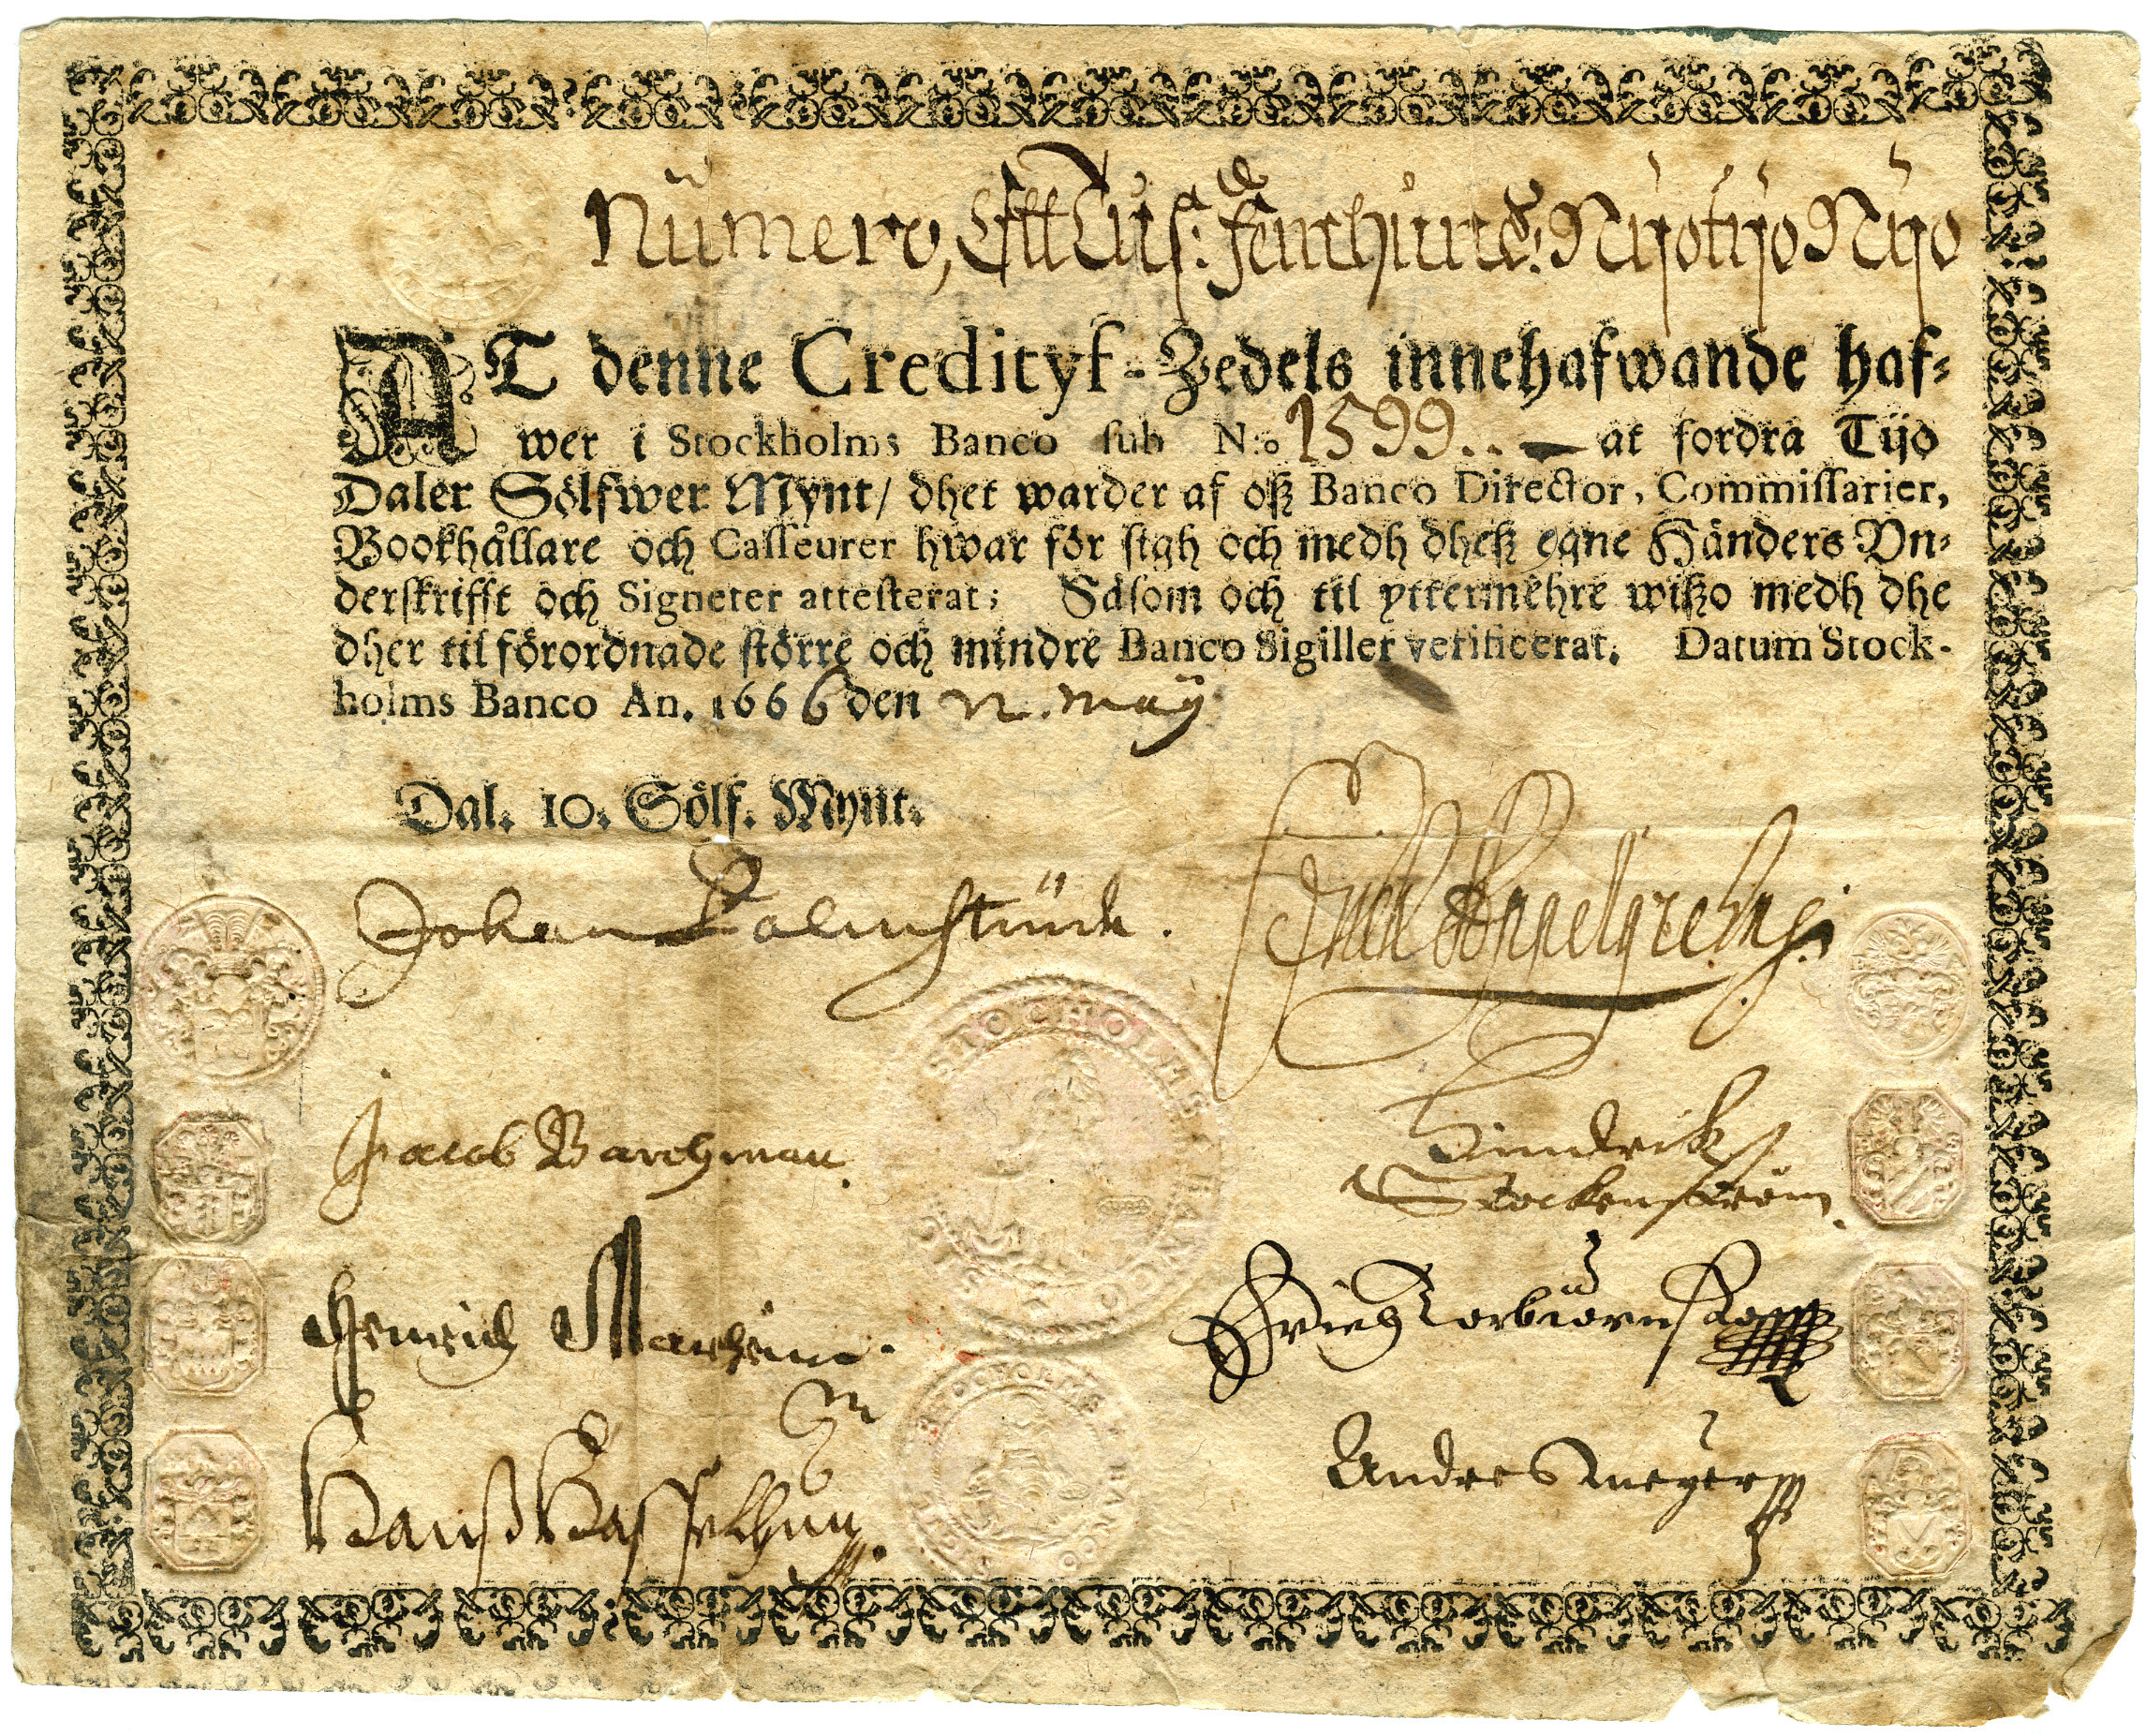 Nümero, Ett Tus: Femhund: Nijotijo Nijo
AT denne Credityf-Zedels innehafwande haf-
wer i Stockholms Banco sub N:o 1599.. at fordra Tijo
Daler Sölfwer Mynt/ dhet warder af oß Banco Director, Commissarier,
Bookhållare och Casseurer hwar för sigh och medh dheß egne Händers Vn-
derskrifft och Signeter attesterat; Såsom och til yttermehre wißo medh dhe
dher til förordnade större och mindre Banco Sigiller verificerat. Datum Stock-
holms Banco An. 1666 den may
Dal. 10. Sölf. Mynt.
Johan Palmstruch.
Jacob Barchman.
Hindrik
Stockenström.
STOCHOLMS BANCO SIG
Henrich
Erich
Andres meyer
STOCHOLMS BANCO